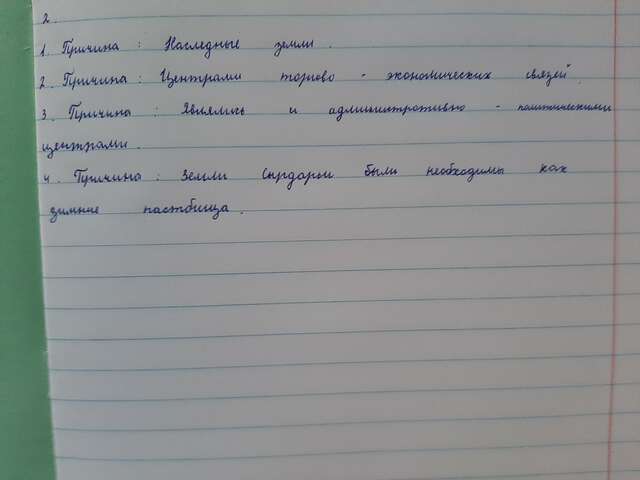 2.
1. Причина : Наследные земли.
2. Причина : Центрами торгово - экономических связей.
3. Причина : Являлись и административно - политическими
центрами.
4. Причина : Земли Сырдарьи были необходимы как
зимние пастбища.